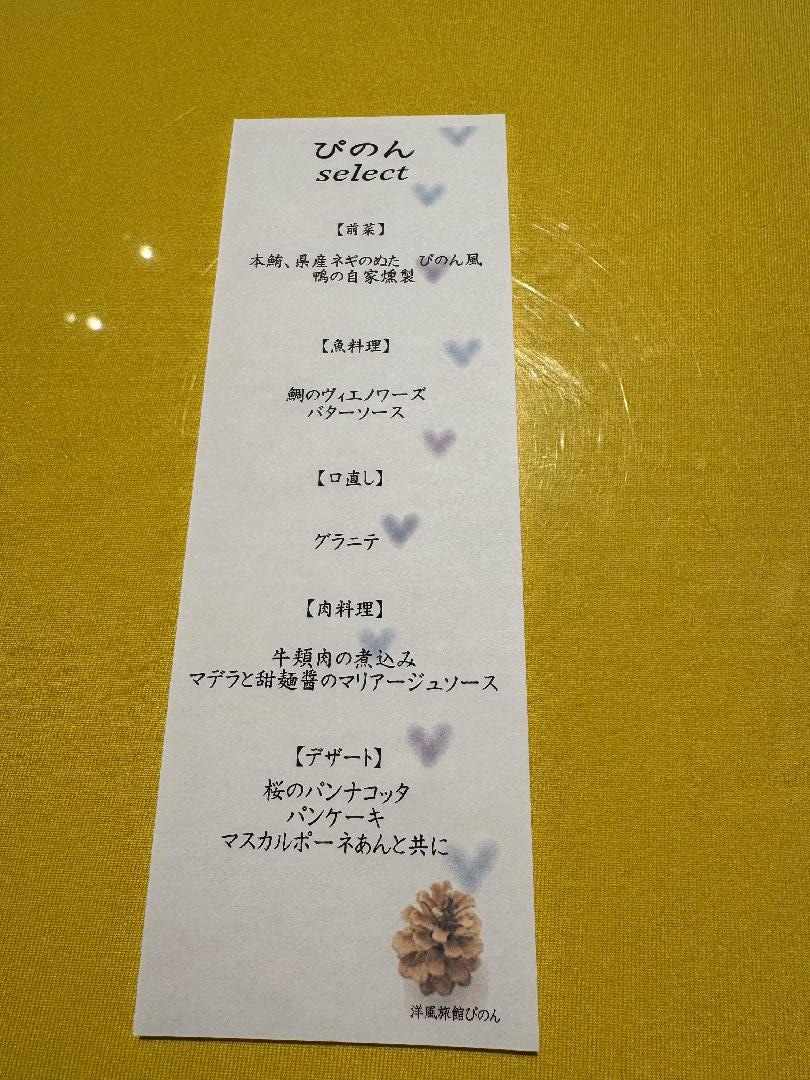 ぴのん
select
【前菜】
本鮪、県産ネギのぬた　ぴのん風
鴨の自家燻製
【魚料理】
鯛のヴィエノワーズ
バターソース
【口直し】
グラニテ
【肉料理】
牛頬肉の煮込み
マデラと甜麺醤のマリアージュソース
【デザート】
桜のパンナコッタ
パンケーキ
マスカルポーネあんと共に
洋風旅館ぴのん